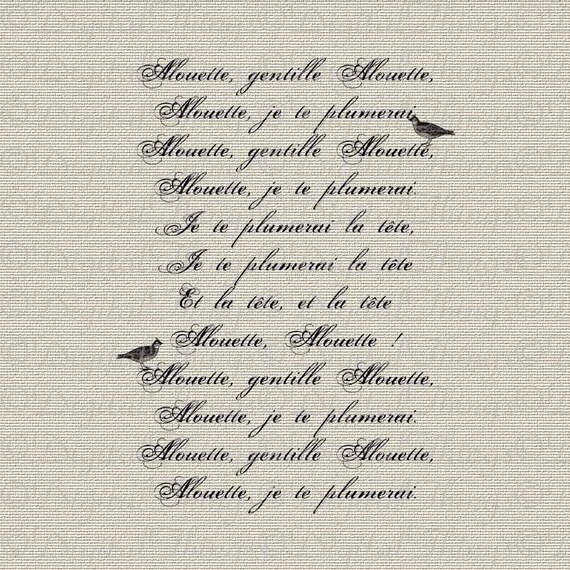 Alouette, gentille Alouette,
Alouette, je te plumerai
Alouette, gentille Alouette,
Alouette, je te plumerai.
Je te plumerai la tête,
Je te plumerai la tête
Et la tête, et la tête
Alouette, Alouette !
Alouette, gentille Alouette,
Alouette, je te plumerai.
Alouette, gentille Alouette,
Alouette, je te plumerai.